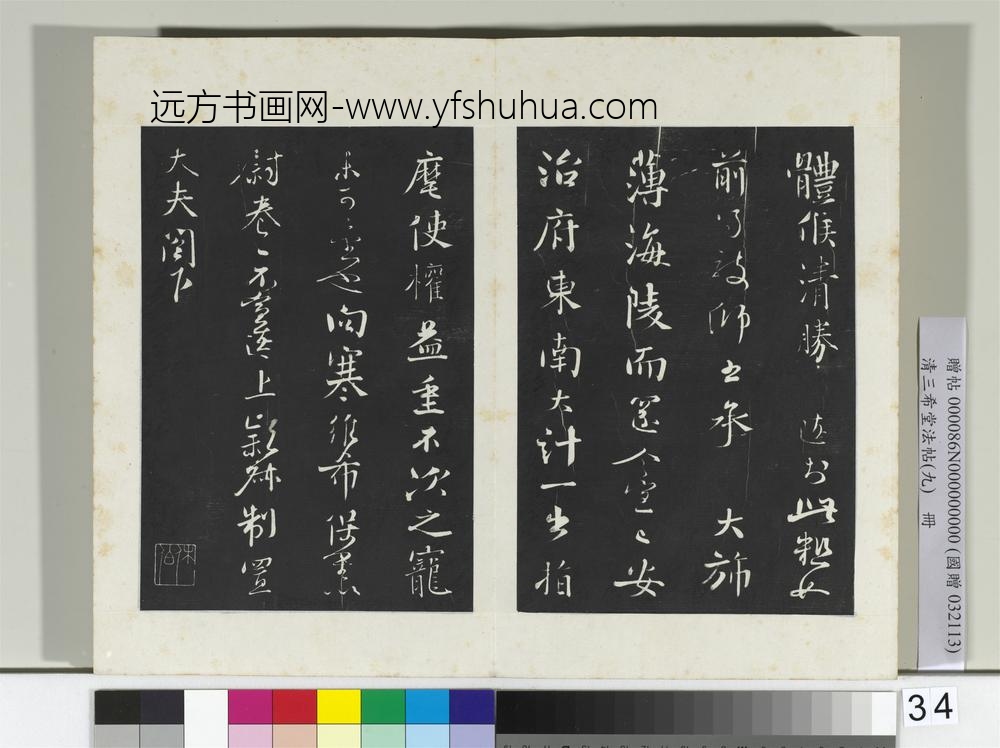 远方书画网-www.yfshuhua.com
體候清勝 於此粗
前 師 承 大旆
薄海陵而還人 安
治府東南大計一出指
麾使權益重不次之寵
未可量也向寒 希保
尉卷 不 上 制置
大夫閣下
贈帖 000086N000000000 (國贈 032113)
清三希堂法帖(九) 冊
34